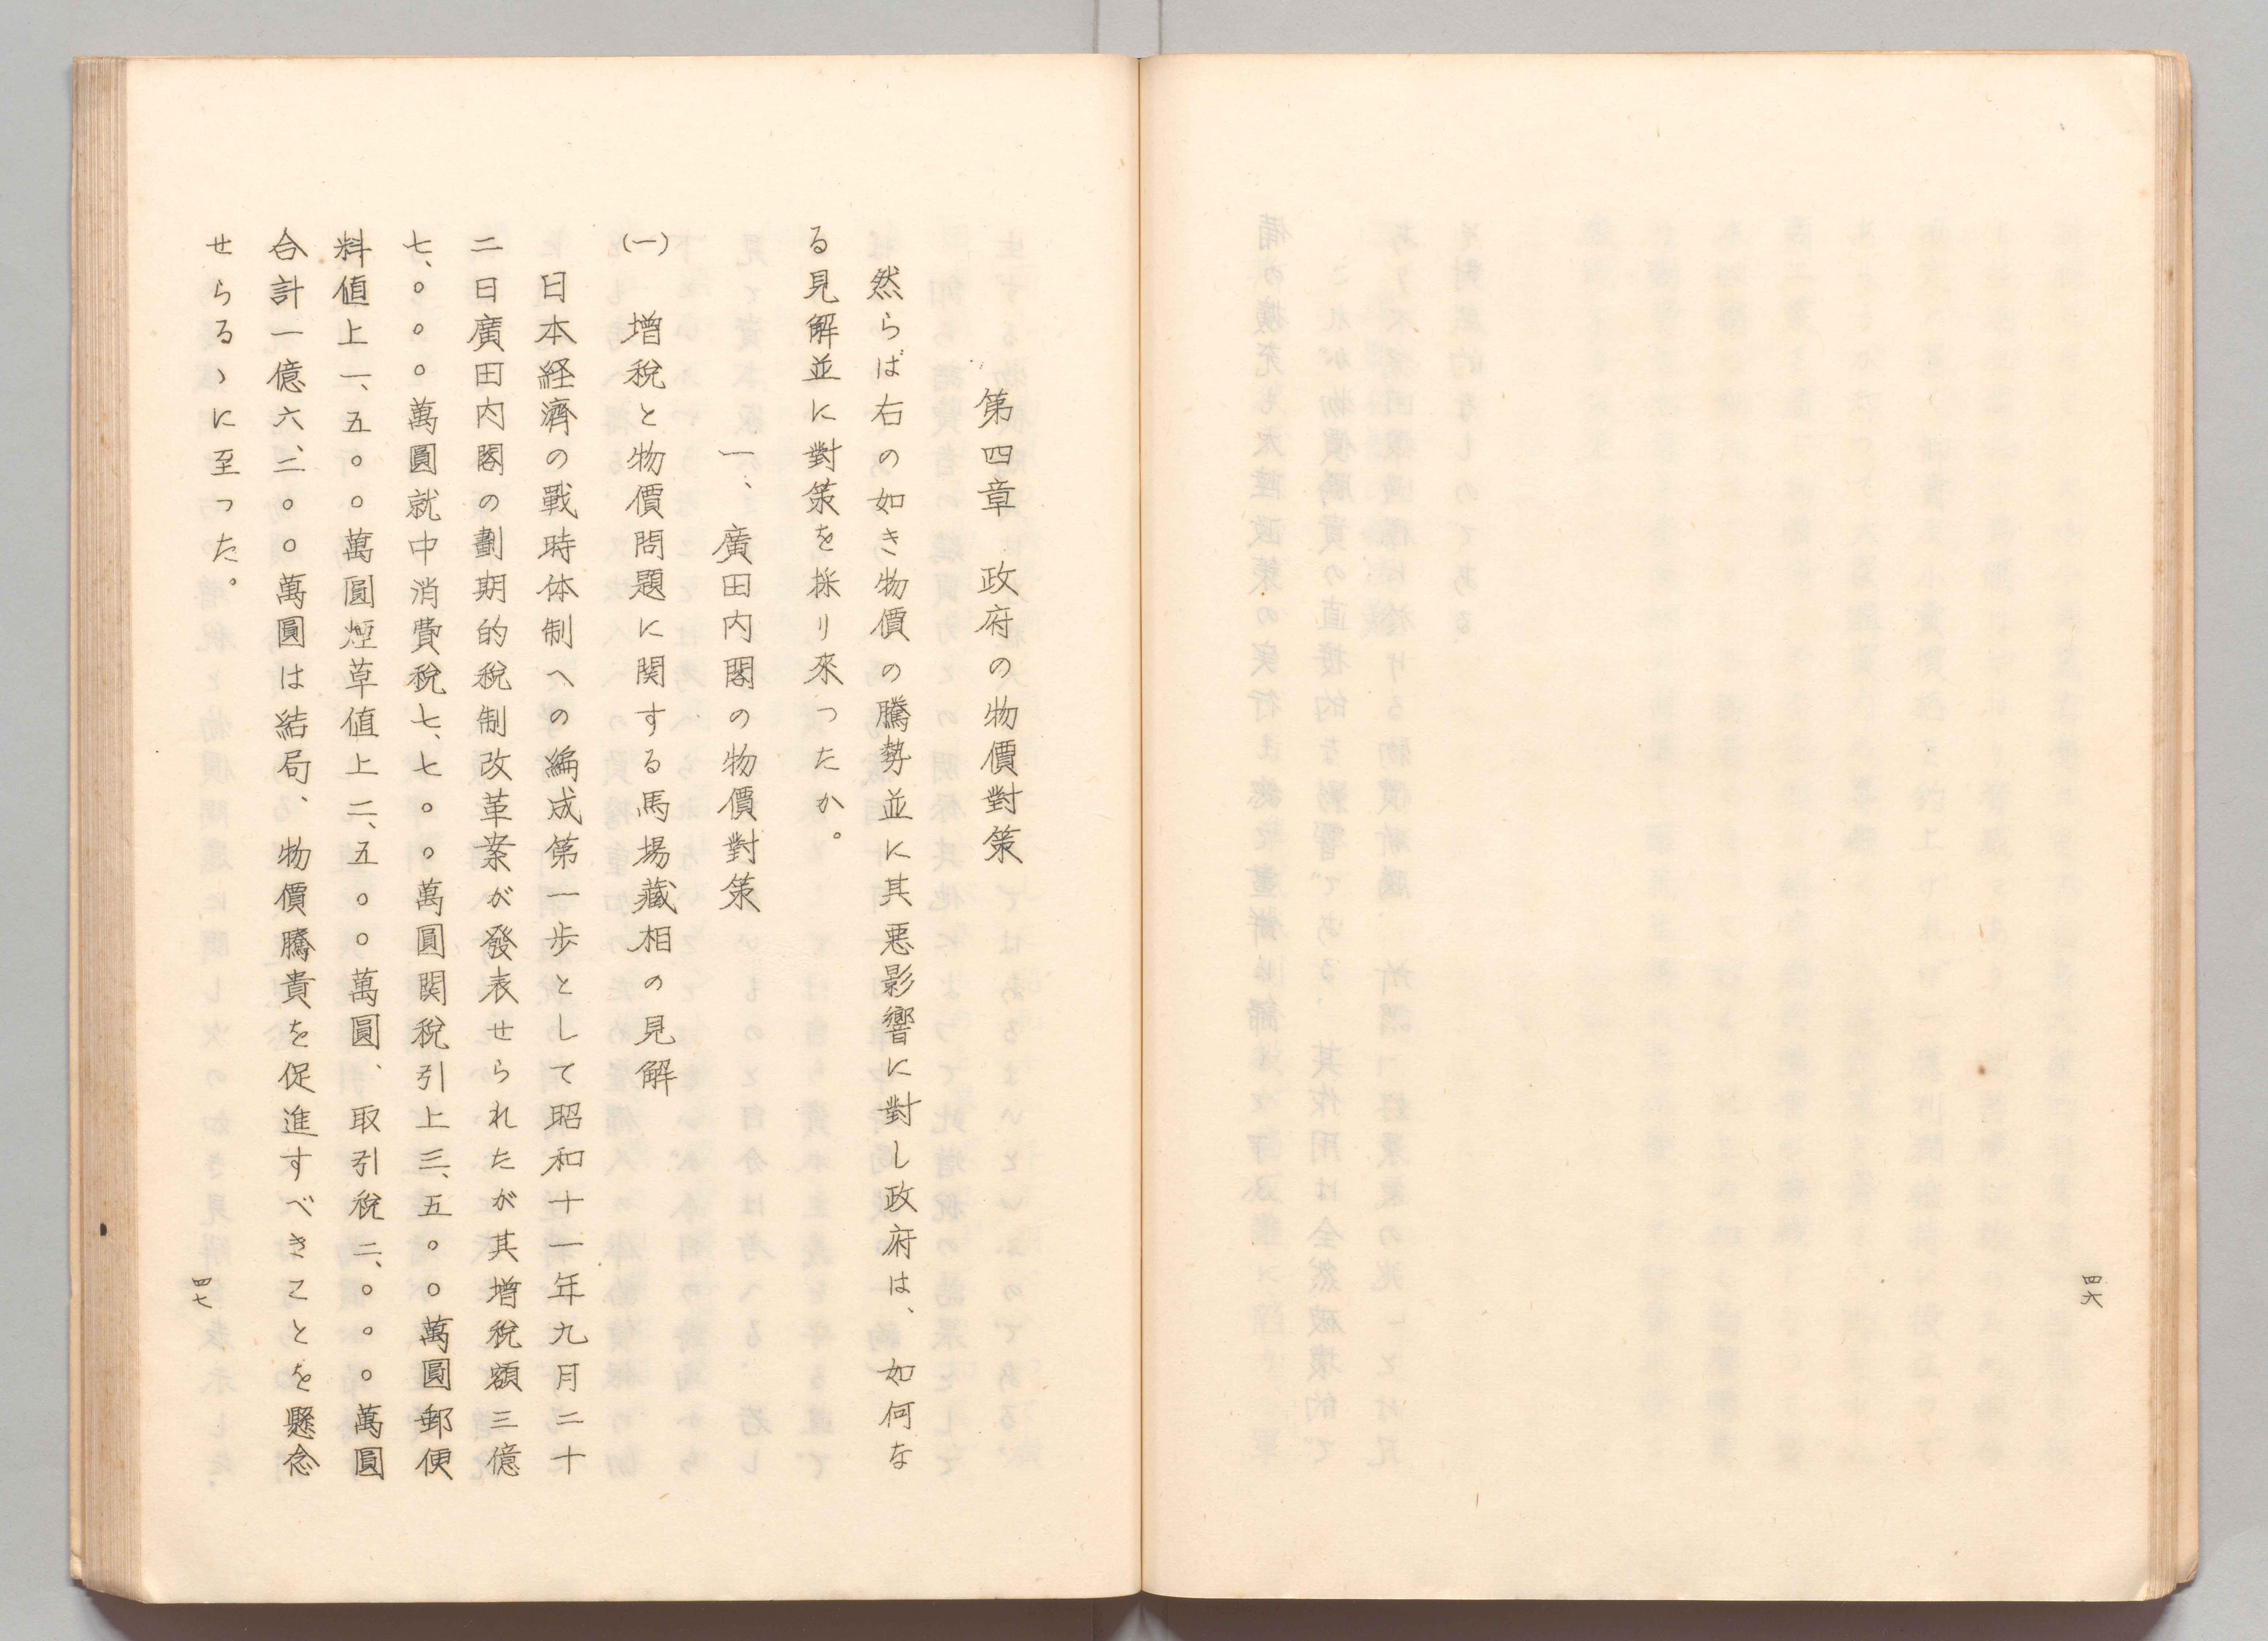 四六
第四章　政府の物價對策
然らば右の如き物價の騰勢並に其悪影響に對し政府は、如何な
る見解並に對策を採り來つたか。
一、廣田内閣の物價對策
(一)　増税と物價問題に関する馬場藏相の見解
日本経濟の戰時体制への編成第一歩として昭和十一年九月二十
二日廣田内閣の劃期的税制改革案が發表せられたが其増税額三億
七、〇〇〇萬圓就中消費税七、七〇〇萬圓関税引上三、五〇〇萬圓郵便
料値上一、五〇〇萬圓煙草値上二、五〇〇萬圓、取引税二、〇〇〇萬圓
合計一億六、二〇〇萬圓は結局、物價騰貴を促進すべきことを懸念
せらるゝに至つた。
四七